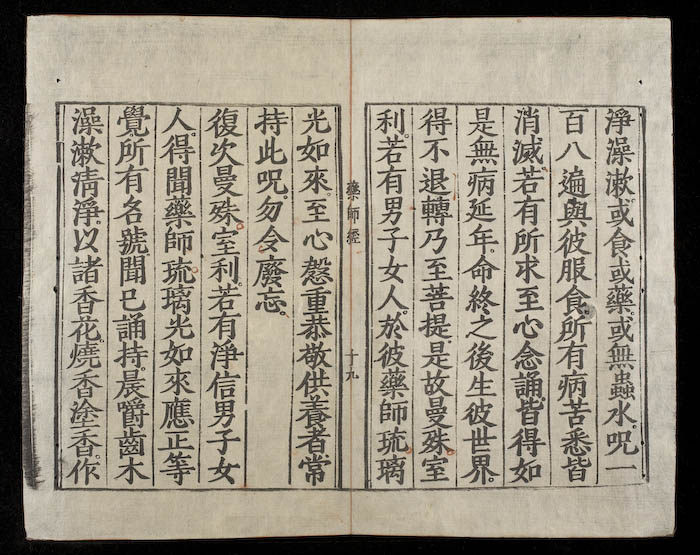 淨澡漱。或食或藥。或無蟲水。呪一
百八遍。與彼服食。所有病苦悉皆
消滅。若有所求。至心念誦。皆得如
是無病延年。命終之後生彼世界。
得不退轉。乃至菩提。是故曼殊室
利。若有男子女人。於彼藥師琉璃
藥師經
十九
光如來。至心慇重恭敬供養者。常
持此呪。勿令廢忘。
復次曼殊室利。若有淨信男子女
人。得聞藥師琉璃光如來應正等
覺。所有名號。聞已誦持。晨嚼齒木
澡漱清淨。以諸香花。燒香塗香。作